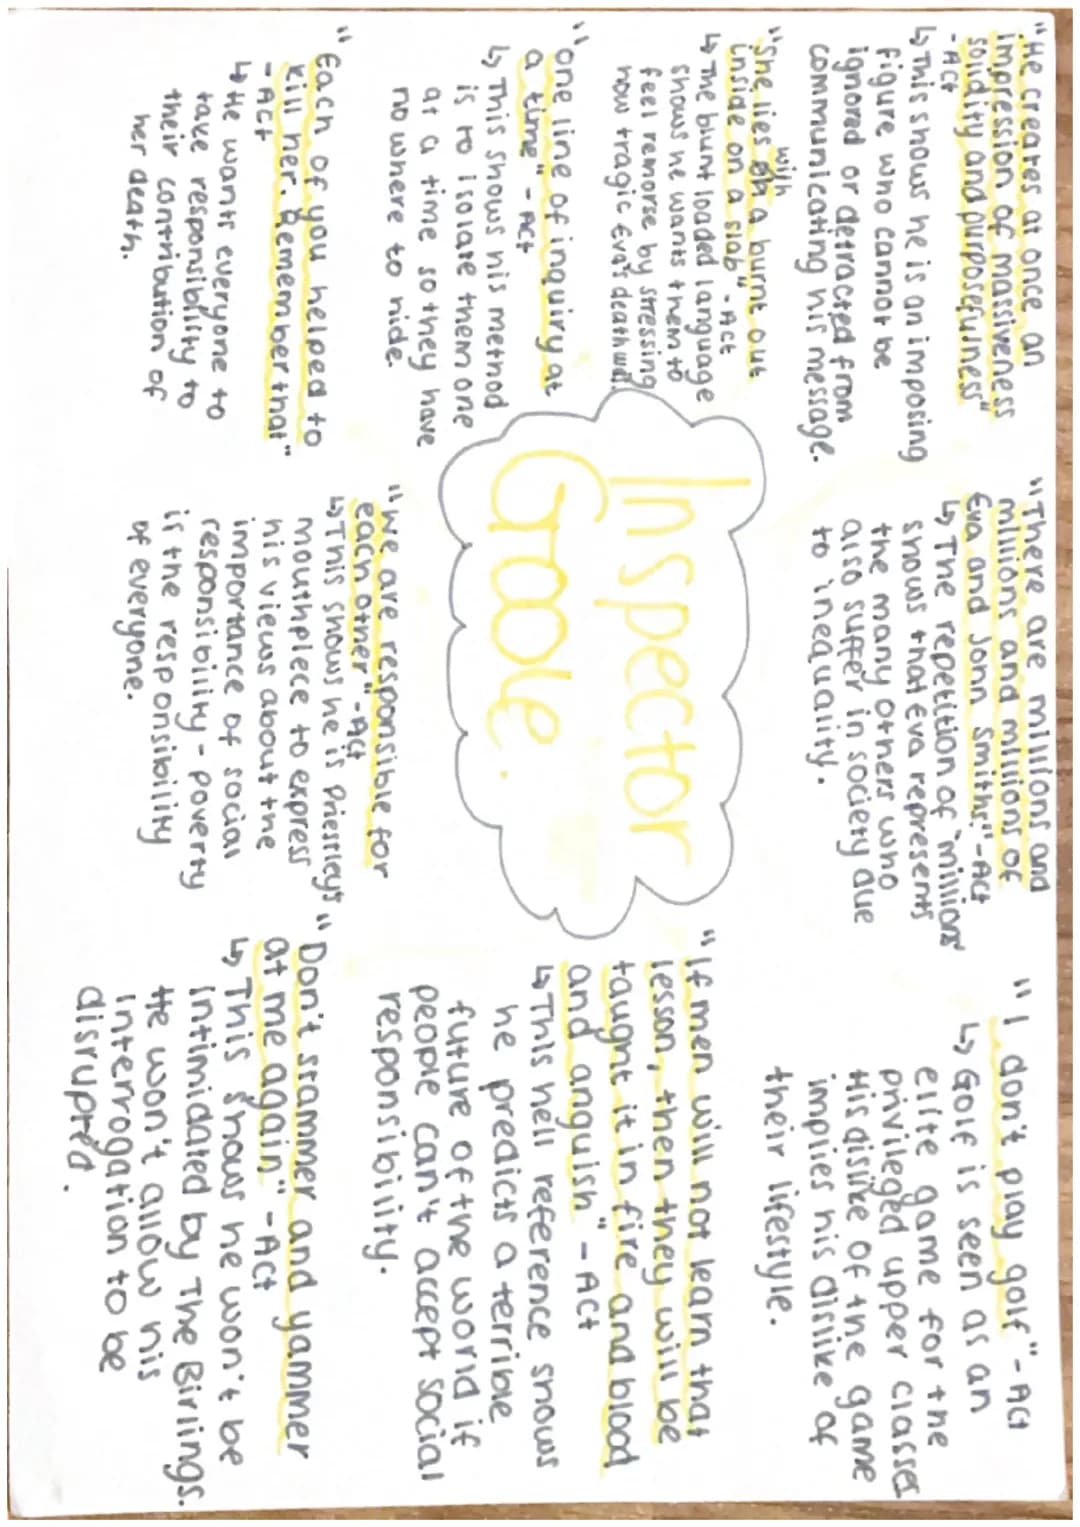 "He creates at once an
impression of massiveness
solidity and purposefulness"
- Act
↳ This shows he is an imposing
figure who cannot be
ignored or detracted from
communicating his message.
"There are millions and
millions and millions of
Eva and John Smiths." - Act
↳ The repetition of 'millions'
shows that Eva represents
the many others who
also suffer in society due
to inequality.
"I don't play golf" - Act
↳ Golf is seen as an
elite game for the
privileged upper classes
His dislike of the game
implies his dislike of
their lifestyle.
"She lies with a burnt out
inside on a slab" - Act
↳ The blunt loaded language
shows he wants them to
feel remorse by stressing
how tragic Eva's death was.
"one line of inquiry at
a time" - Act
↳ This shows his method
is to isolate them one
at a time so they have
no where to hide.
Inspector
Goole.
"If men will not learn that
lesson, then they will be
taught it in fire and blood
and anguish" - Act
↳ This hell reference shows
he predicts a terrible
future of the world if
people can't accept social
responsibility.
"Each of you helped to
kill her. Remember that"
- Act
↳ He wants everyone to
take responsibility to
their contribution of
her death.
"We are responsible for
each other" - Act
↳ This shows he is Priestley's
mouthpiece to express
his views about the
importance of social
responsibility - poverty
is the responsibility
of everyone.
"Don't stammer and yammer
at me again," - Act
↳ This shows he won't be
intimidated by The Birlings.
He won't allow his
interrogation to be
disrupted.